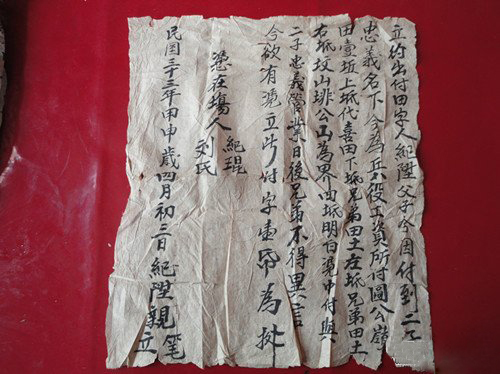 立約出付田字人紀陞父子今因付到二子
忠義名下今為兵役工資所付圓公嶺
田壹坵上坻代喜田下坻兄弟田土左坻兄弟田土
右坻坟山排公山為界由坻明白憑中付與
二子忠義管業日後兄弟不得異言
今欲有憑立此付字壹帋為據
憑在場人 紀琨
劉氏
民國三十三年甲申歲四月初二日紀陞親筆立